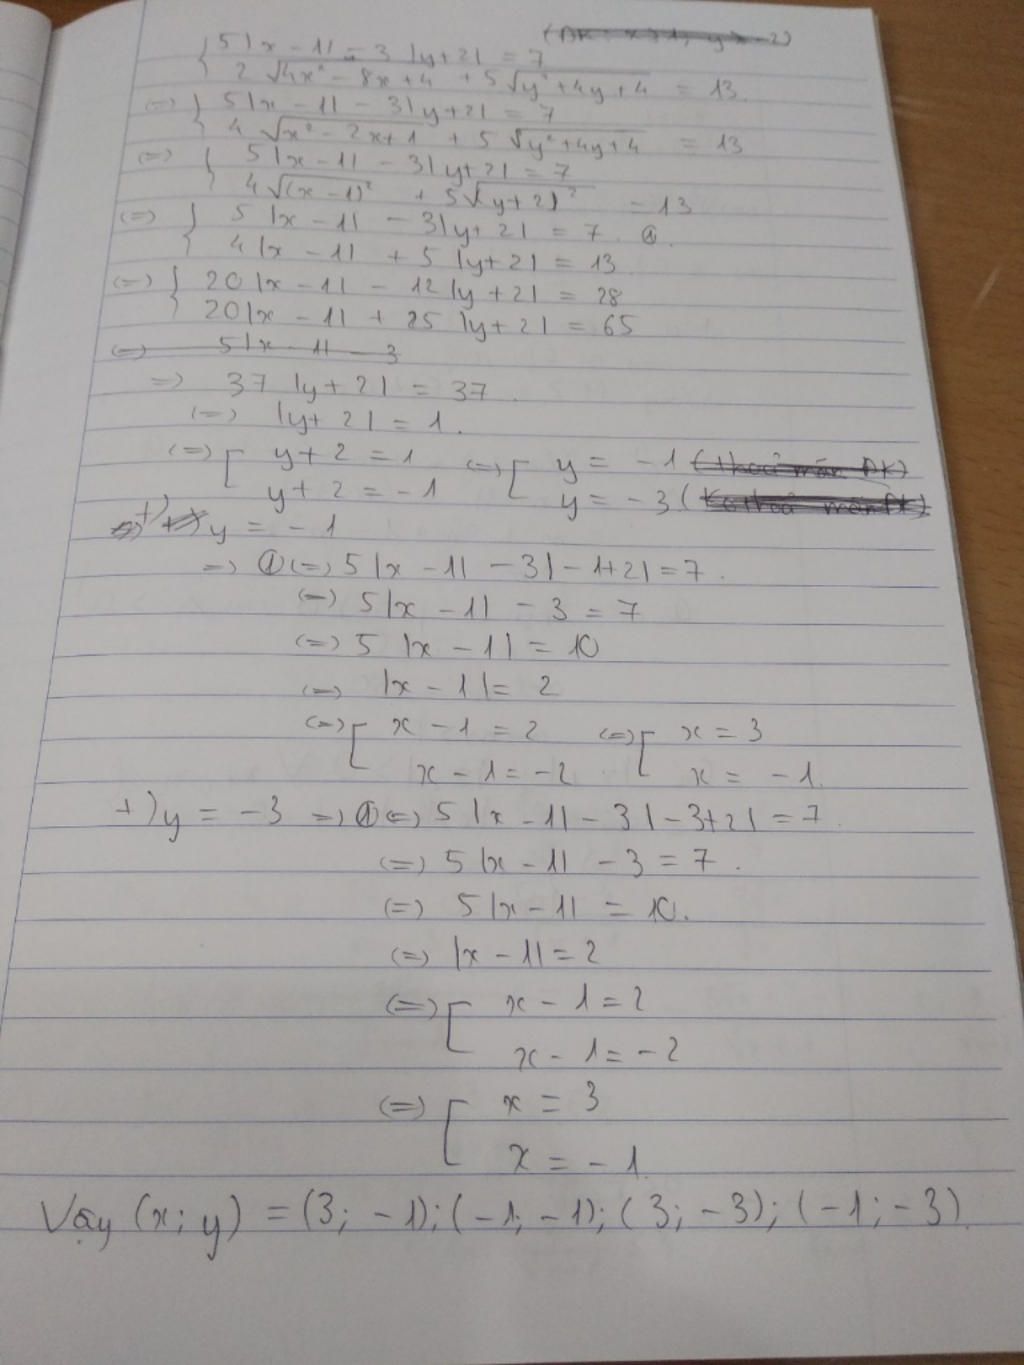 (ĐK: x ≥ 1; y ≥ -2)
{ 5|x - 1| - 3|y+2| = 7
{ 2√(4x² - 8x + 4) + 5√(y² + 4y + 4) = 13
(=) { 5|x - 1| - 3|y+2| = 7
{ 4√(x² - 2x + 1) + 5√(y² + 4y + 4) = 13
(=) { 5|x - 1| - 3|y + 2| = 7
{ 4√((x - 1)²) + 5√((y + 2)²) = 13
(=) { 5|x - 1| - 3|y + 2| = 7. ①.
{ 4|x - 1| + 5|y + 2| = 13
(=) { 20|x - 1| - 12|y + 2| = 28
{ 20|x - 1| + 25|y + 2| = 65
(=) 5|x - 1| - 3
=) 37|y + 2| = 37.
(=) |y + 2| = 1.
(=) [ y + 2 = 1 (=) [ y = -1 (thoả mãn ĐK)
[ y + 2 = -1 [ y = -3 (ko thoả mãn ĐK)
+) y = -1
=) ① (=) 5|x - 1| - 3|-1+2| = 7.
(=) 5|x - 1| - 3 = 7
(=) 5|x - 1| = 10
(=) |x - 1| = 2
(=) [ x - 1 = 2 (=) [ x = 3
[ x - 1 = -2 [ x = -1.
+) y = -3 =) ① (=) 5|x - 1| - 3|-3+2| = 7.
(=) 5|x - 1| - 3 = 7.
(=) 5|x - 1| = 10.
(=) |x - 1| = 2
(=) [ x - 1 = 2
[ x - 1 = -2
(=) [ x = 3
[ x = -1
Vậy (x; y) = (3; -1); (-1; -1); (3; -3); (-1; -3).